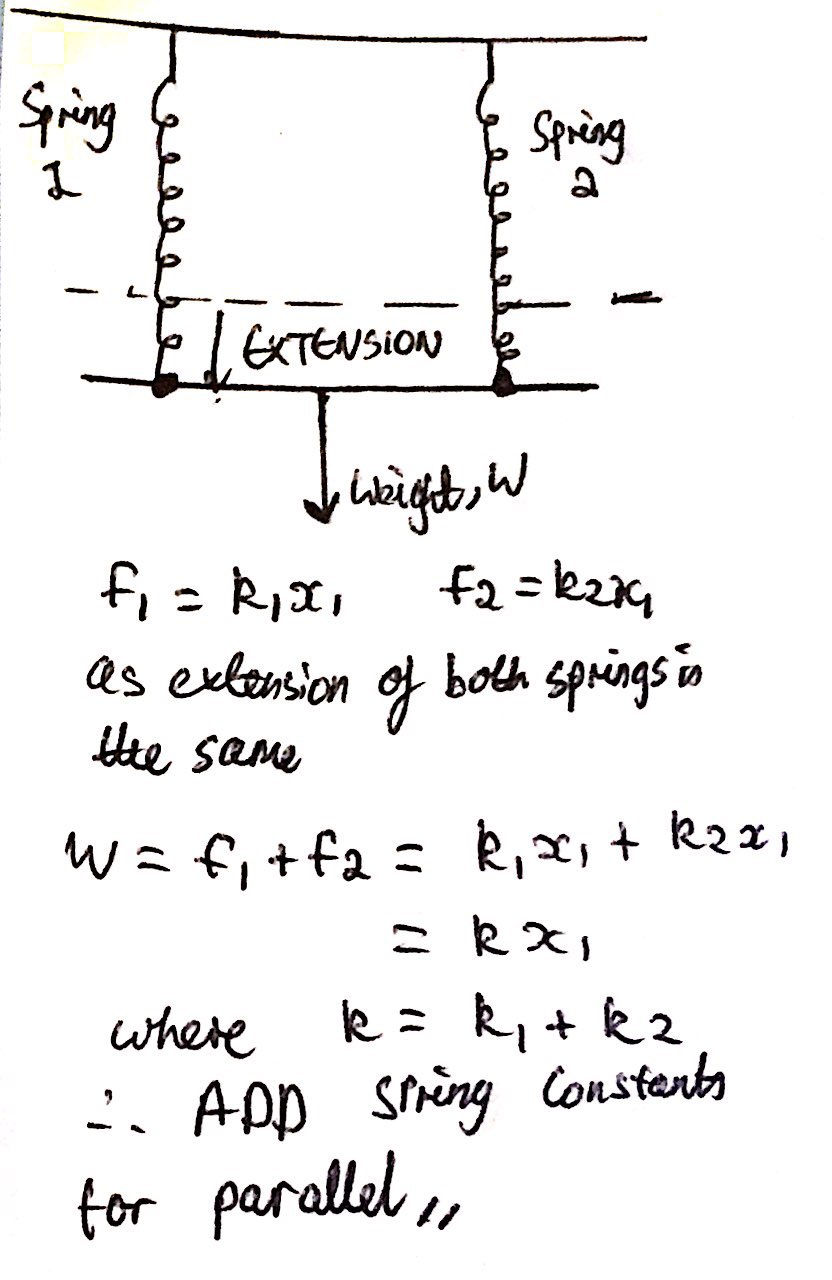 Spring
1
Spring
2
EXTENSION
Weight, W
f₁ = k₁x₁ f2 = k2x₁
as extension of both springs is
the same
W = f₁ + f2 = k₁x₁ + k2x₁
= kx₁
where k = k₁ + k2
∴ ADD spring constants
for parallel,,